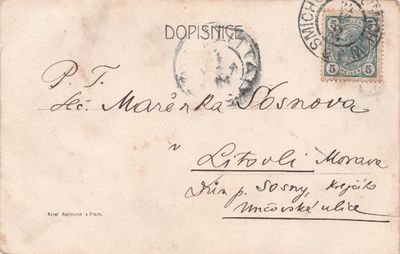 DOPISNICE
SMICH
5 5
5 5
P. T.
Sleč. Mařenka Sosnova
v
Litovli Morava
Dům p. Sosny, Krejčího
Unčovské ulice
Karel Bellmann v Praze.